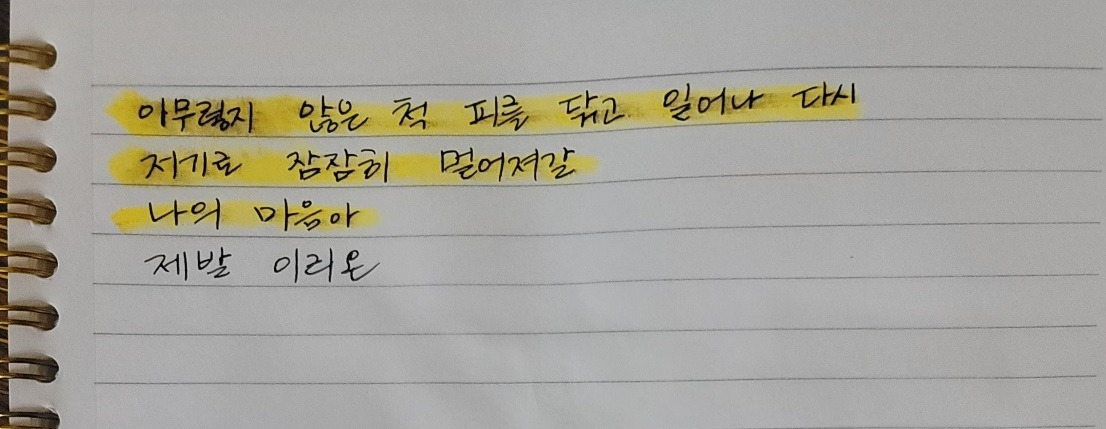 아무렇지 않은 척 피를 닦고 일어나 다시
저기로 잠잠히 멀어져갈
나의 마음아
제발 이리온